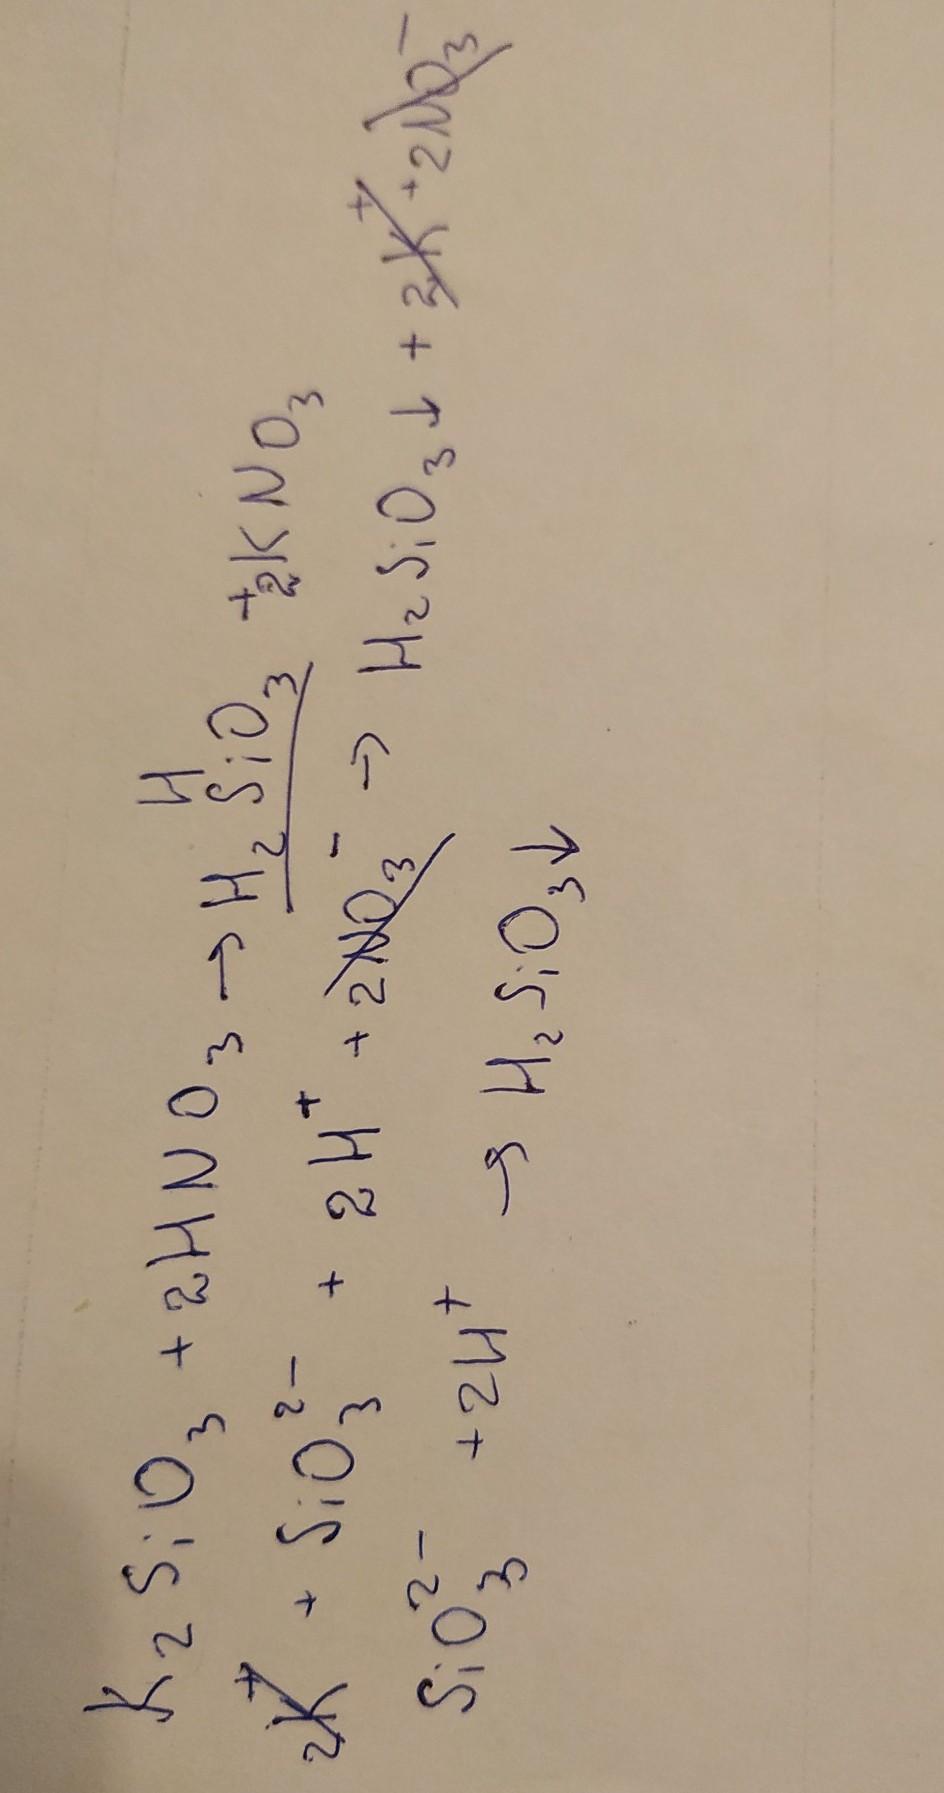 K₂SiO₃ + 2HNO₃ → H₂SiO₃ + 2KNO₃
2K⁺ + SiO₃²⁻ + 2H⁺ + 2NO₃⁻ → H₂SiO₃↓ + 2K⁺ + 2NO₃⁻
SiO₃²⁻ + 2H⁺ → H₂SiO₃↓